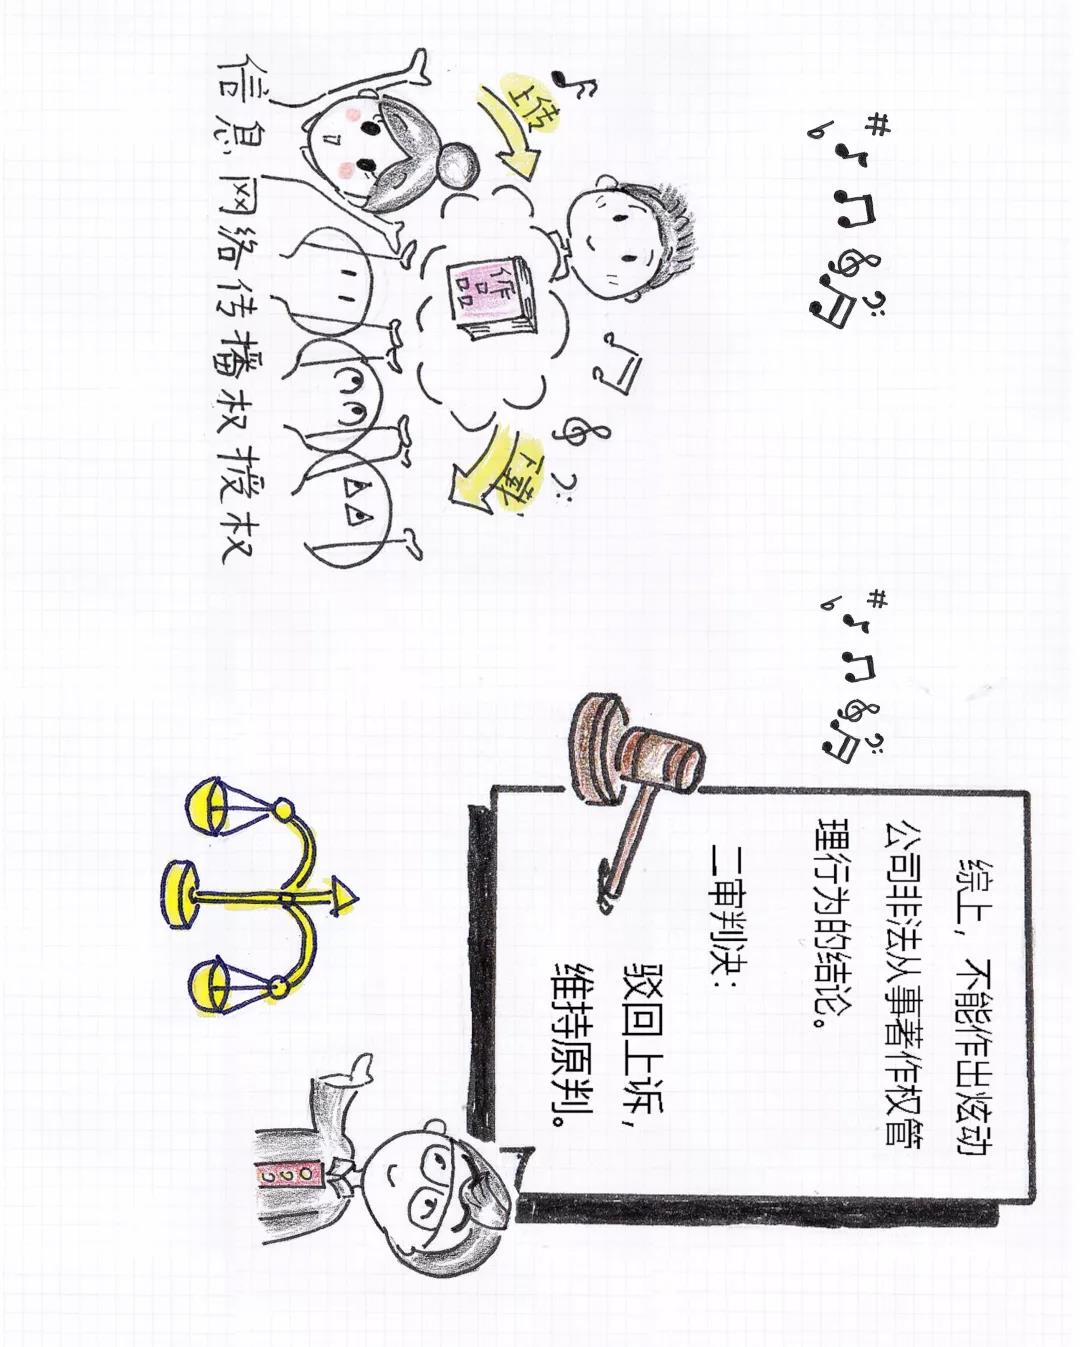 上传
作
品
下载
信息网络传播权授权
综上，不能作出炫动
公司非法从事著作权管
理行为的结论。
二审判决：
驳回上诉，
维持原判。